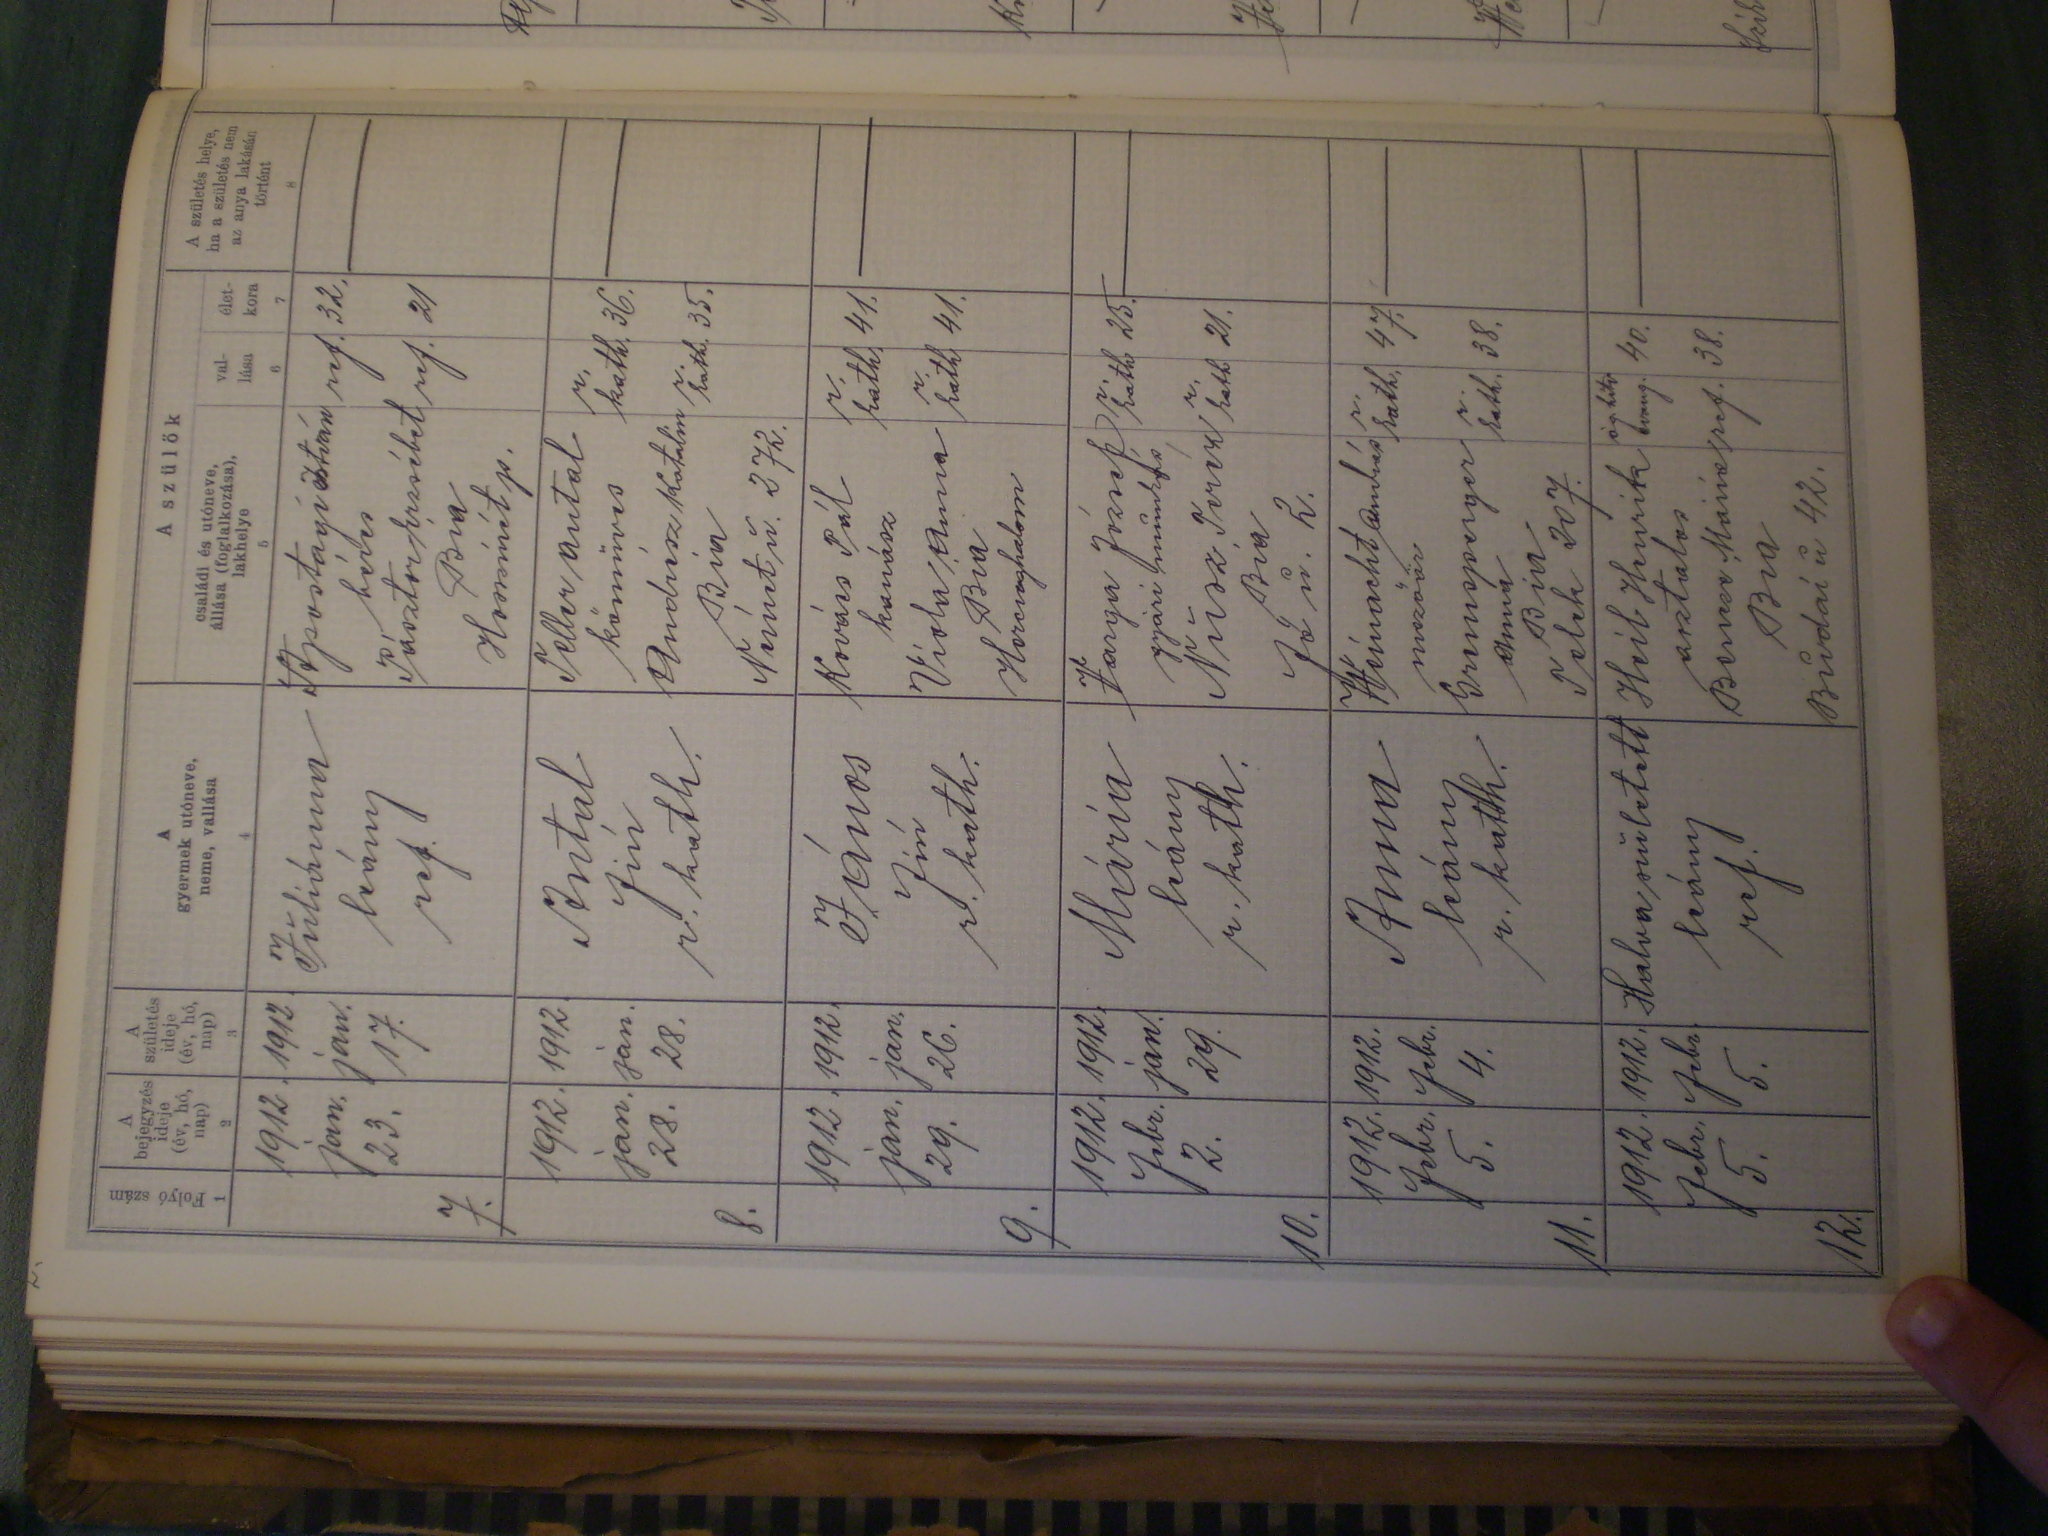 A szülők
Folyó szám
A bejegyzés ideje (év, hó, nap)
A születés ideje (év, hó, nap)
A gyermek utóneve, neme, vallása
családi és utóneve, állása (foglalkozása), lakhelye
vallása
életkora
A születés helye, ha a születés nem az anya lakásán történt
1
2
3
4
5
6
7
8
7.
1912. jan. 23.
1912. jan. 17.
Juliánna
leány
ref.
Apostagi István ref. 32.
béres
Pásztor Erzsébet ref. 21
Bia
8.
1912. jan. 28.
1912. jan. 28.
Antal
fiú
r. kath.
Teller Antal r. kath. 36.
kőműves
Andrész Katalin r. kath. 35.
Bia
Német u. 272.
9.
1912. jan. 29.
1912. jan. 26.
János
fiú
r. kath.
Kovács Pál r. kath. 41.
kanász
Viola Anna r. kath. 41.
Bia
Herceghalom
10.
1912. febr. 2.
1912. jan. 29.
Mária
leány
r. kath.
Varga József r. kath. 25.
gyári munkás
Nüsz Teréz r. kath. 21.
Bia
Fő u. 2.
11.
1912. febr. 5.
1912. febr. 4.
Anna
leány
r. kath.
András r. kath. 47.
mezőőr
Gremsperger r. kath. 38.
Anna
Bia
Telek 207.
12.
1912. febr. 5.
1912. febr. 5.
Halva született
leány
ref.
Heil Henrik ág. hitv. evang. 40.
asztalos
Mária ref. 38.
Bia
Budai u 42.